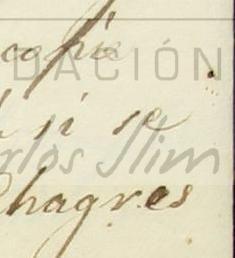 copia
DACIÓN
si se
rlos Slim
Chagres